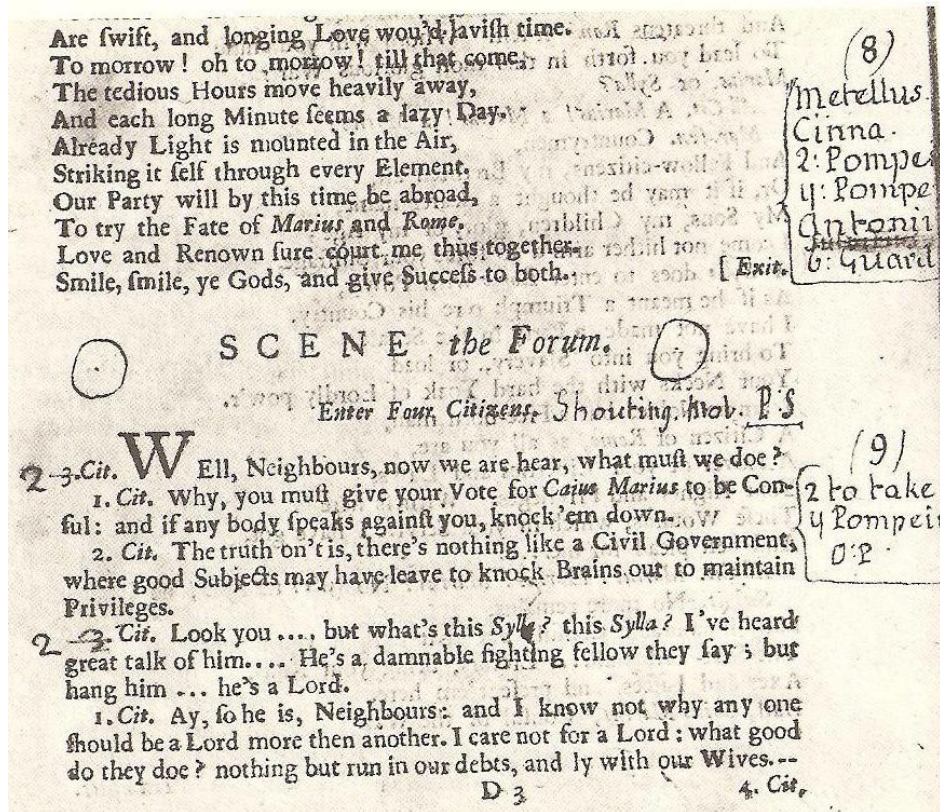 Are ſwift, and longing Love wou'd laviſh time.
To morrow! oh to morrow! till that come,
The tedious Hours move heavily away,
And each long Minute ſeems a lazy Day.
Already Light is mounted in the Air,
Striking it ſelf through every Element.
Our Party will by this time be abroad,
To try the Fate of Marius and Rome.
Love and Renown ſure court me thus together.
Smile, ſmile, ye Gods, and give Succeſs to both.
[Exit.
(8)
Metellus.
Cinna.
2: Pompe
4: Pompe
Antoniu
6: Guard
SCENE the Forum.
Enter Four Citizens. Shouting. Mob. P.S
2 3. Cit. WEll, Neighbours, now we are hear, what muſt we doe?
1. Cit. Why, you muſt give your Vote for Caius Marius to be Con-
ſul: and if any body ſpeaks againſt you, knock 'em down.
2. Cit. The truth on't is, there's nothing like a Civil Government,
where good Subjects may have leave to knock Brains out to maintain
Privileges.
2 3. Cit. Look you .... but what's this Sylla? this Sylla? I've heard
great talk of him.... He's a damnable fighting fellow they ſay; but
hang him ... he's a Lord.
1. Cit. Ay, ſo he is, Neighbours: and I know not why any one
ſhould be a Lord more then another. I care not for a Lord: what good
do they doe? nothing but run in our debts, and ly with our Wives.--
D 3
4. Cit.
(9)
2 to take
4 Pompei
O:P.